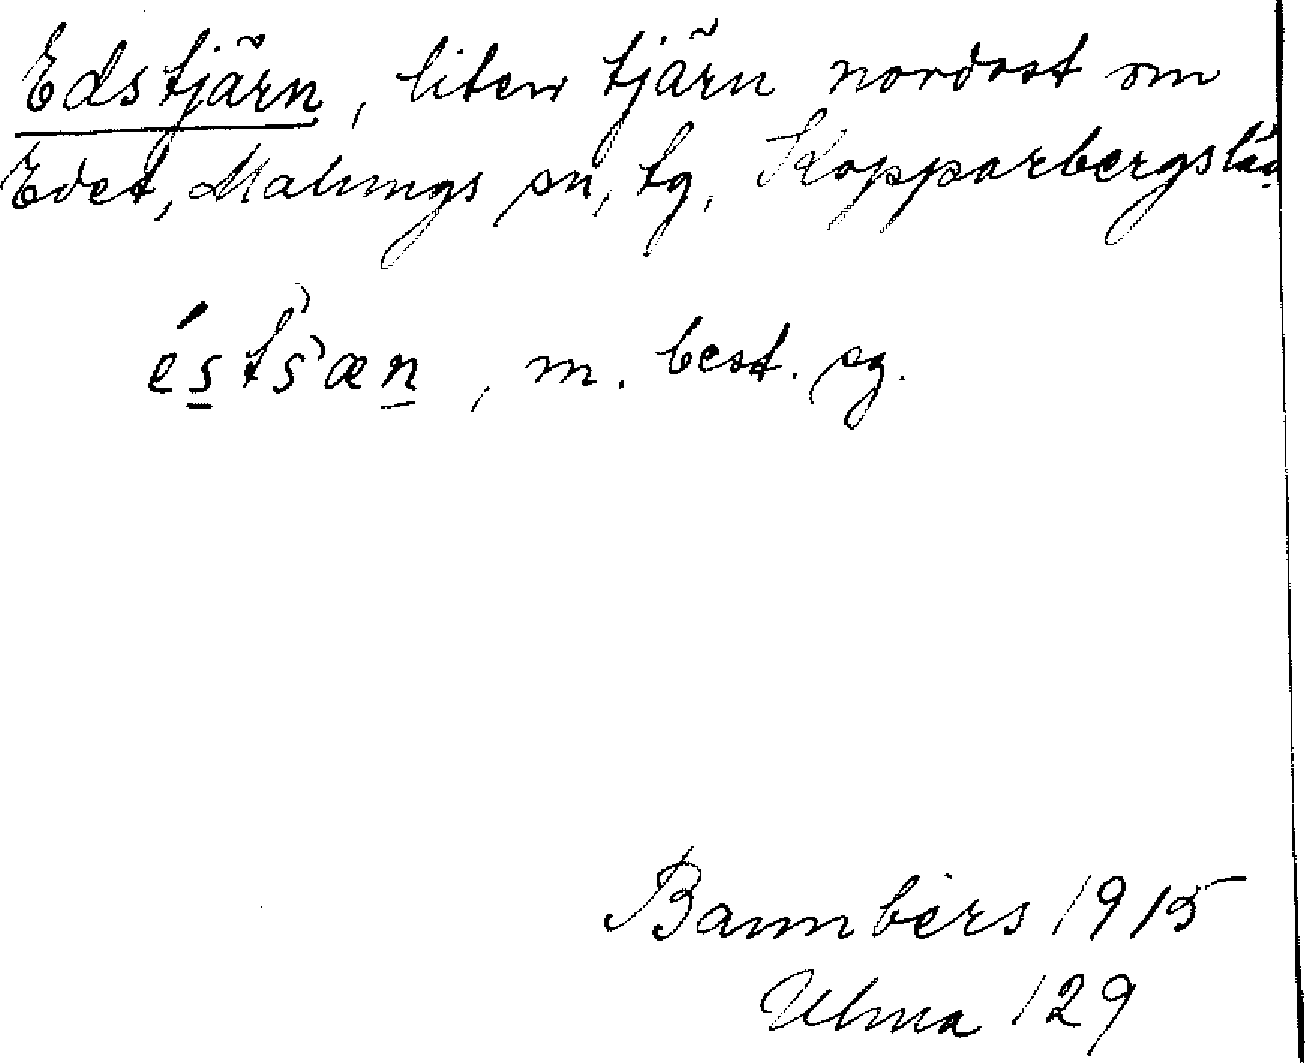 Edstjärn, liten tjärn nordost om
Edet, Malungs sn, tg, Kopparbergs län
m. best. sg.
Bannbers 1915
Ulma 129